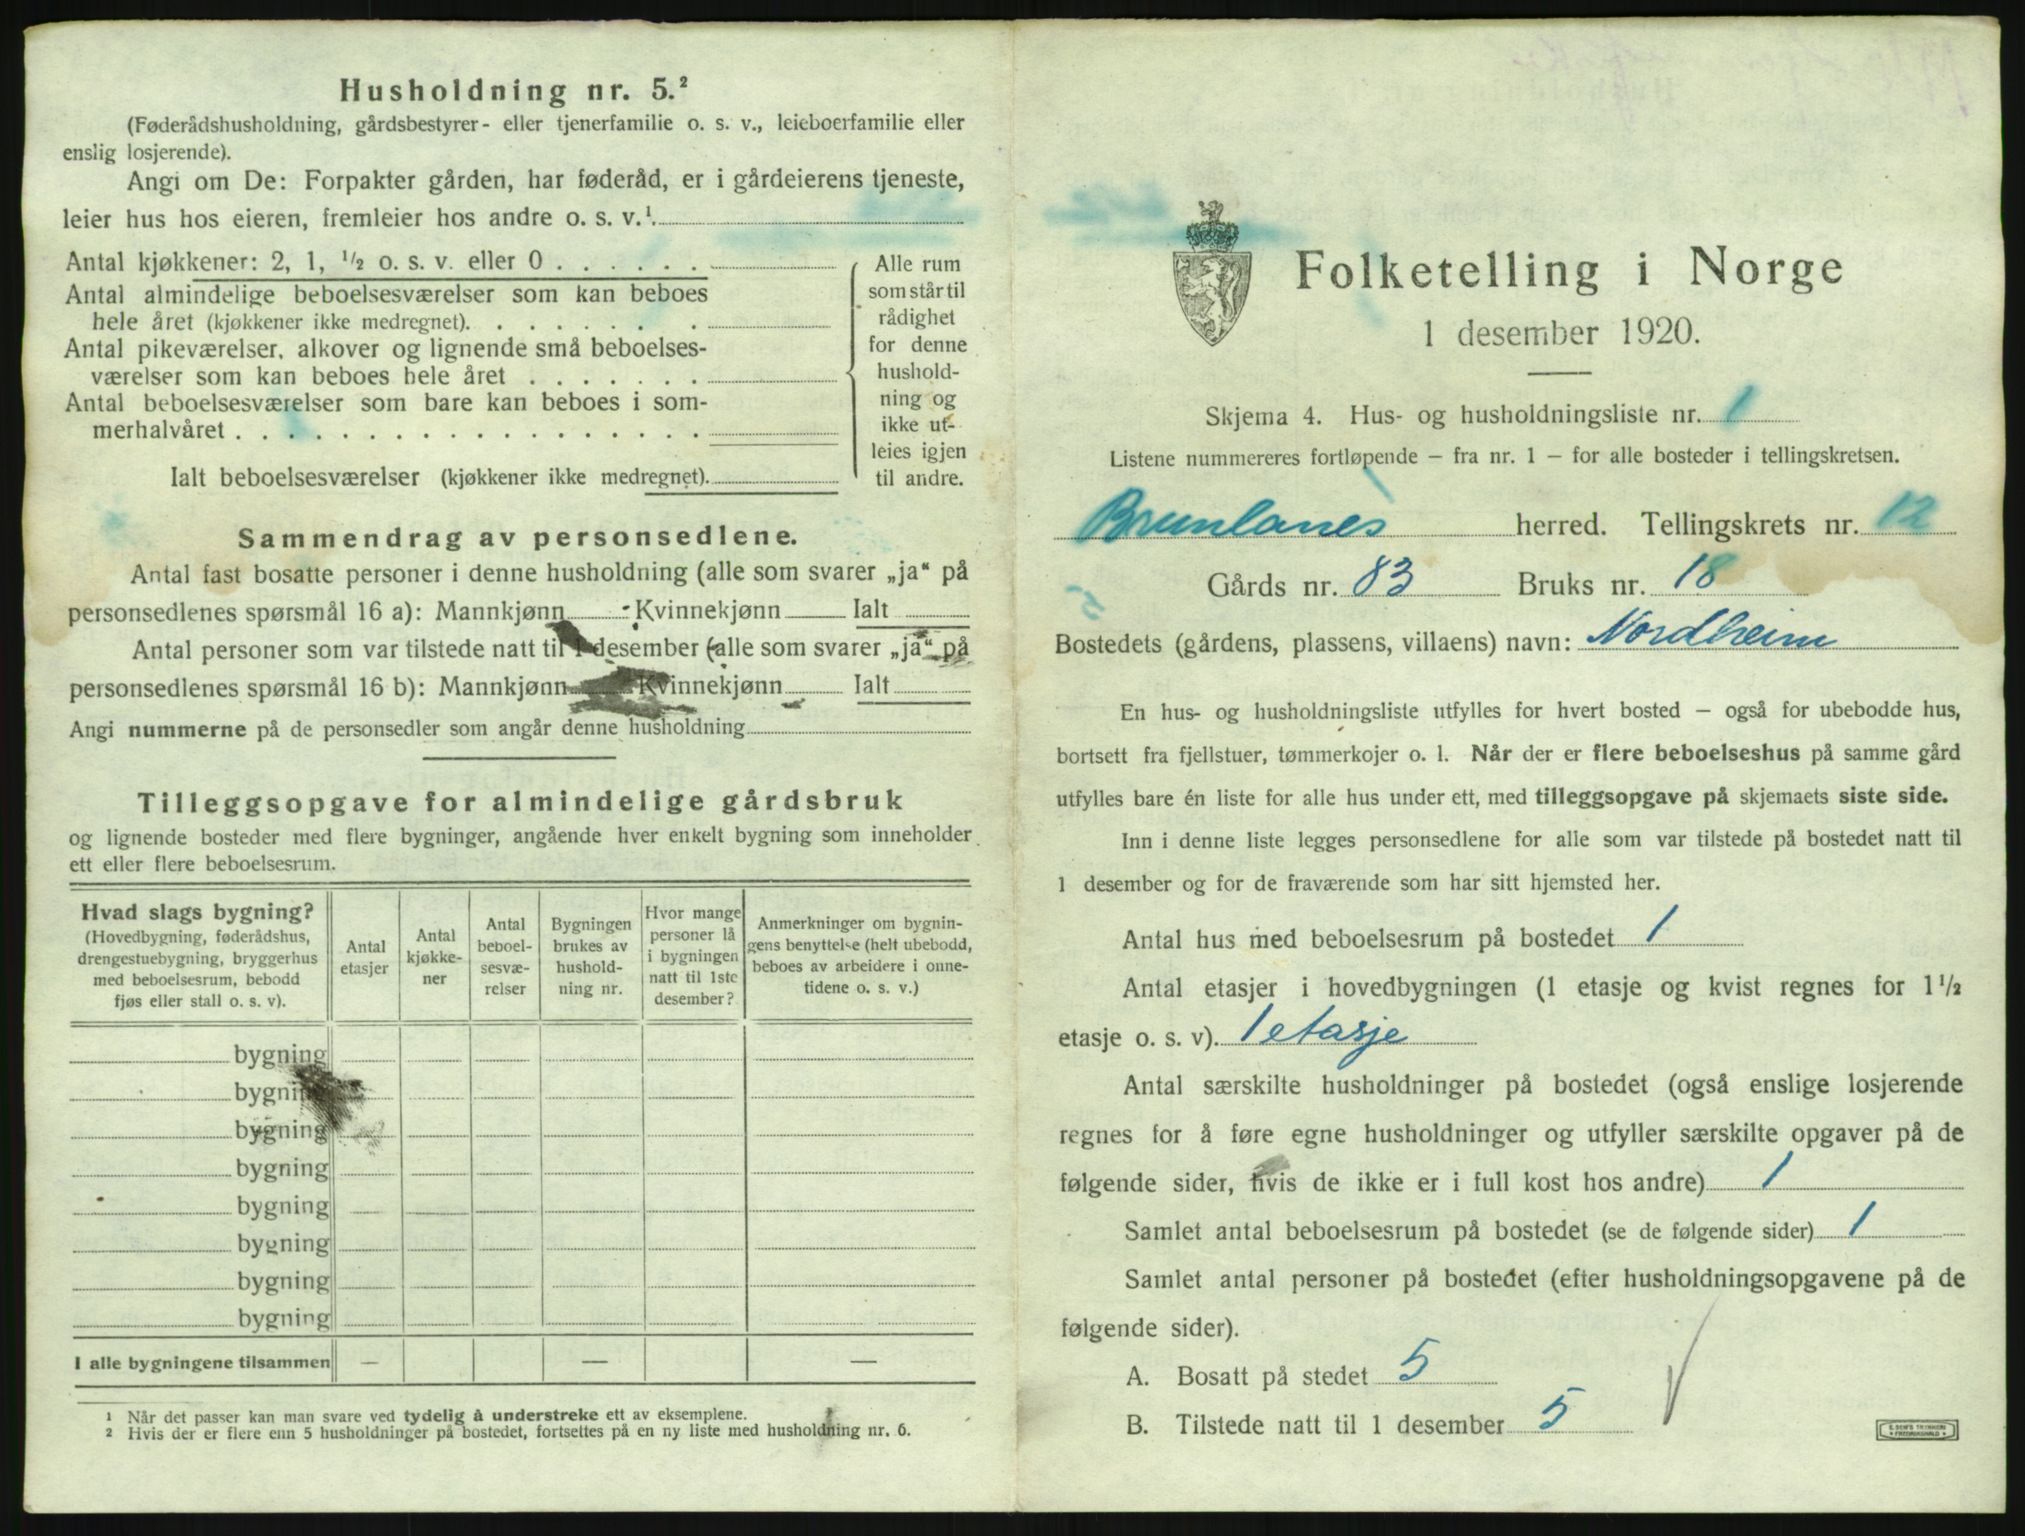 Husholdning nr. 5.²
(Føderådshusholdning, gårdsbestyrer- eller tjenerfamilie o. s. v., leieboerfamilie eller
enslig losjerende).
Angi om De: Forpakter gården, har føderåd, er i gårdeierens tjeneste,
leier hus hos eieren, fremleier hos andre o. s. v.¹.
Antal kjøkkener: 2, 1, ½ o. s. v. eller 0 . . . . . .
Antal almindelige beboelsesværelser som kan beboes
hele året (kjøkkener ikke medregnet). . . . . . . .
Antal pikeværelser, alkover og lignende små beboelses-
værelser som kan beboes hele året . . . . . . .
Antal beboelsesværelser som bare kan beboes i som-
merhalvåret . . . . . . . . . . . . . . . . . .
Alle rum
som står til
rådighet
for denne
hushold-
ning og
ikke ut-
leies igjen
til andre.
Ialt beboelsesværelser (kjøkkener ikke medregnet).
Sammendrag av personsedlene.
Antal fast bosatte personer i denne husholdning (alle som svarer „ja“ på
personsedlenes spørsmål 16 a): Mannkjønn Kvinnekjønn Ialt
Antal personer som var tilstede natt til 1 desember (alle som svarer „ja“ på
personsedlenes spørsmål 16 b): Mannkjønn Kvinnekjønn Ialt
Angi nummerne på de personsedler som angår denne husholdning
Tilleggsopgave for almindelige gårdsbruk
og lignende bosteder med flere bygninger, angående hver enkelt bygning som inneholder
ett eller flere beboelsesrum.
Hvad slags bygning?
(Hovedbygning, føderådshus,
drengestuebygning, bryggerhus
med beboelsesrum, bebodd
fjøs eller stall o. s. v).
Antal
etasjer
Antal
kjøkke-
ner
Antal
beboel-
sesvæ-
relser
Bygningen
brukes av
hushold-
ning nr.
Hvor mange
personer lå
i bygningen
natt til 1ste
desember?
Anmerkninger om bygnin-
gens benyttelse (helt ubebodd,
beboes av arbeidere i onne-
tidene o. s. v.)
bygning
bygning
bygning
bygning
bygning
bygning
bygning
bygning
I alle bygningene tilsammen — — —
¹ Når det passer kan man svare ved tydelig å understreke ett av eksemplene.
² Hvis der er flere enn 5 husholdninger på bostedet, fortsettes på en ny liste med husholdning nr. 6.
Folketelling i Norge
1 desember 1920.
Skjema 4. Hus- og husholdningsliste nr. 1
Listene nummereres fortløpende – fra nr. 1 – for alle bosteder i tellingskretsen.
Brunlanes herred. Tellingskrets nr. 12
Gårds nr. 83 Bruks nr. 18
Bostedets (gårdens, plassens, villaens) navn: Nordheim
En hus- og husholdningsliste utfylles for hvert bosted – også for ubebodde hus,
bortsett fra fjellstuer, tømmerkojer o. l. Når der er flere beboelseshus på samme gård
utfylles bare én liste for alle hus under ett, med tilleggsopgave på skjemaets siste side.
Inn i denne liste legges personsedlene for alle som var tilstede på bostedet natt til
1 desember og for de fraværende som har sitt hjemsted her.
Antal hus med beboelsesrum på bostedet 1
Antal etasjer i hovedbygningen (1 etasje og kvist regnes for 1½
etasje o. s. v). 1 etasje
Antal særskilte husholdninger på bostedet (også enslige losjerende
regnes for å føre egne husholdninger og utfyller særskilte opgaver på de
følgende sider, hvis de ikke er i full kost hos andre) 1
Samlet antal beboelsesrum på bostedet (se de følgende sider) 1
Samlet antal personer på bostedet (efter husholdningsopgavene på de
følgende sider).
A. Bosatt på stedet 5
B. Tilstede natt til 1 desember 5